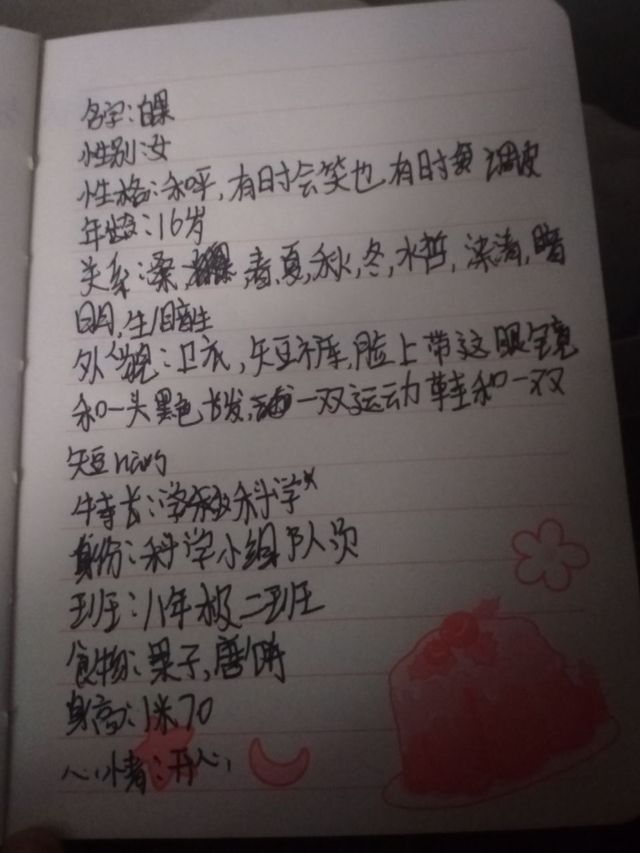 名字:白果
性别:女
性格:和呼,有时会笑也有时 调皮
年龄:16岁
关系: 春,夏,秋,冬,水哲, 清,暗
明,生
外貌:卫衣,短裤,脸上带这眼镜
和一头黑色长发, 一双运动鞋和一双
短
特长:学 科学
身份:科学小组队员
班:八年级二班班
食物:果子,唐饼
身高:1米70
心情:开心